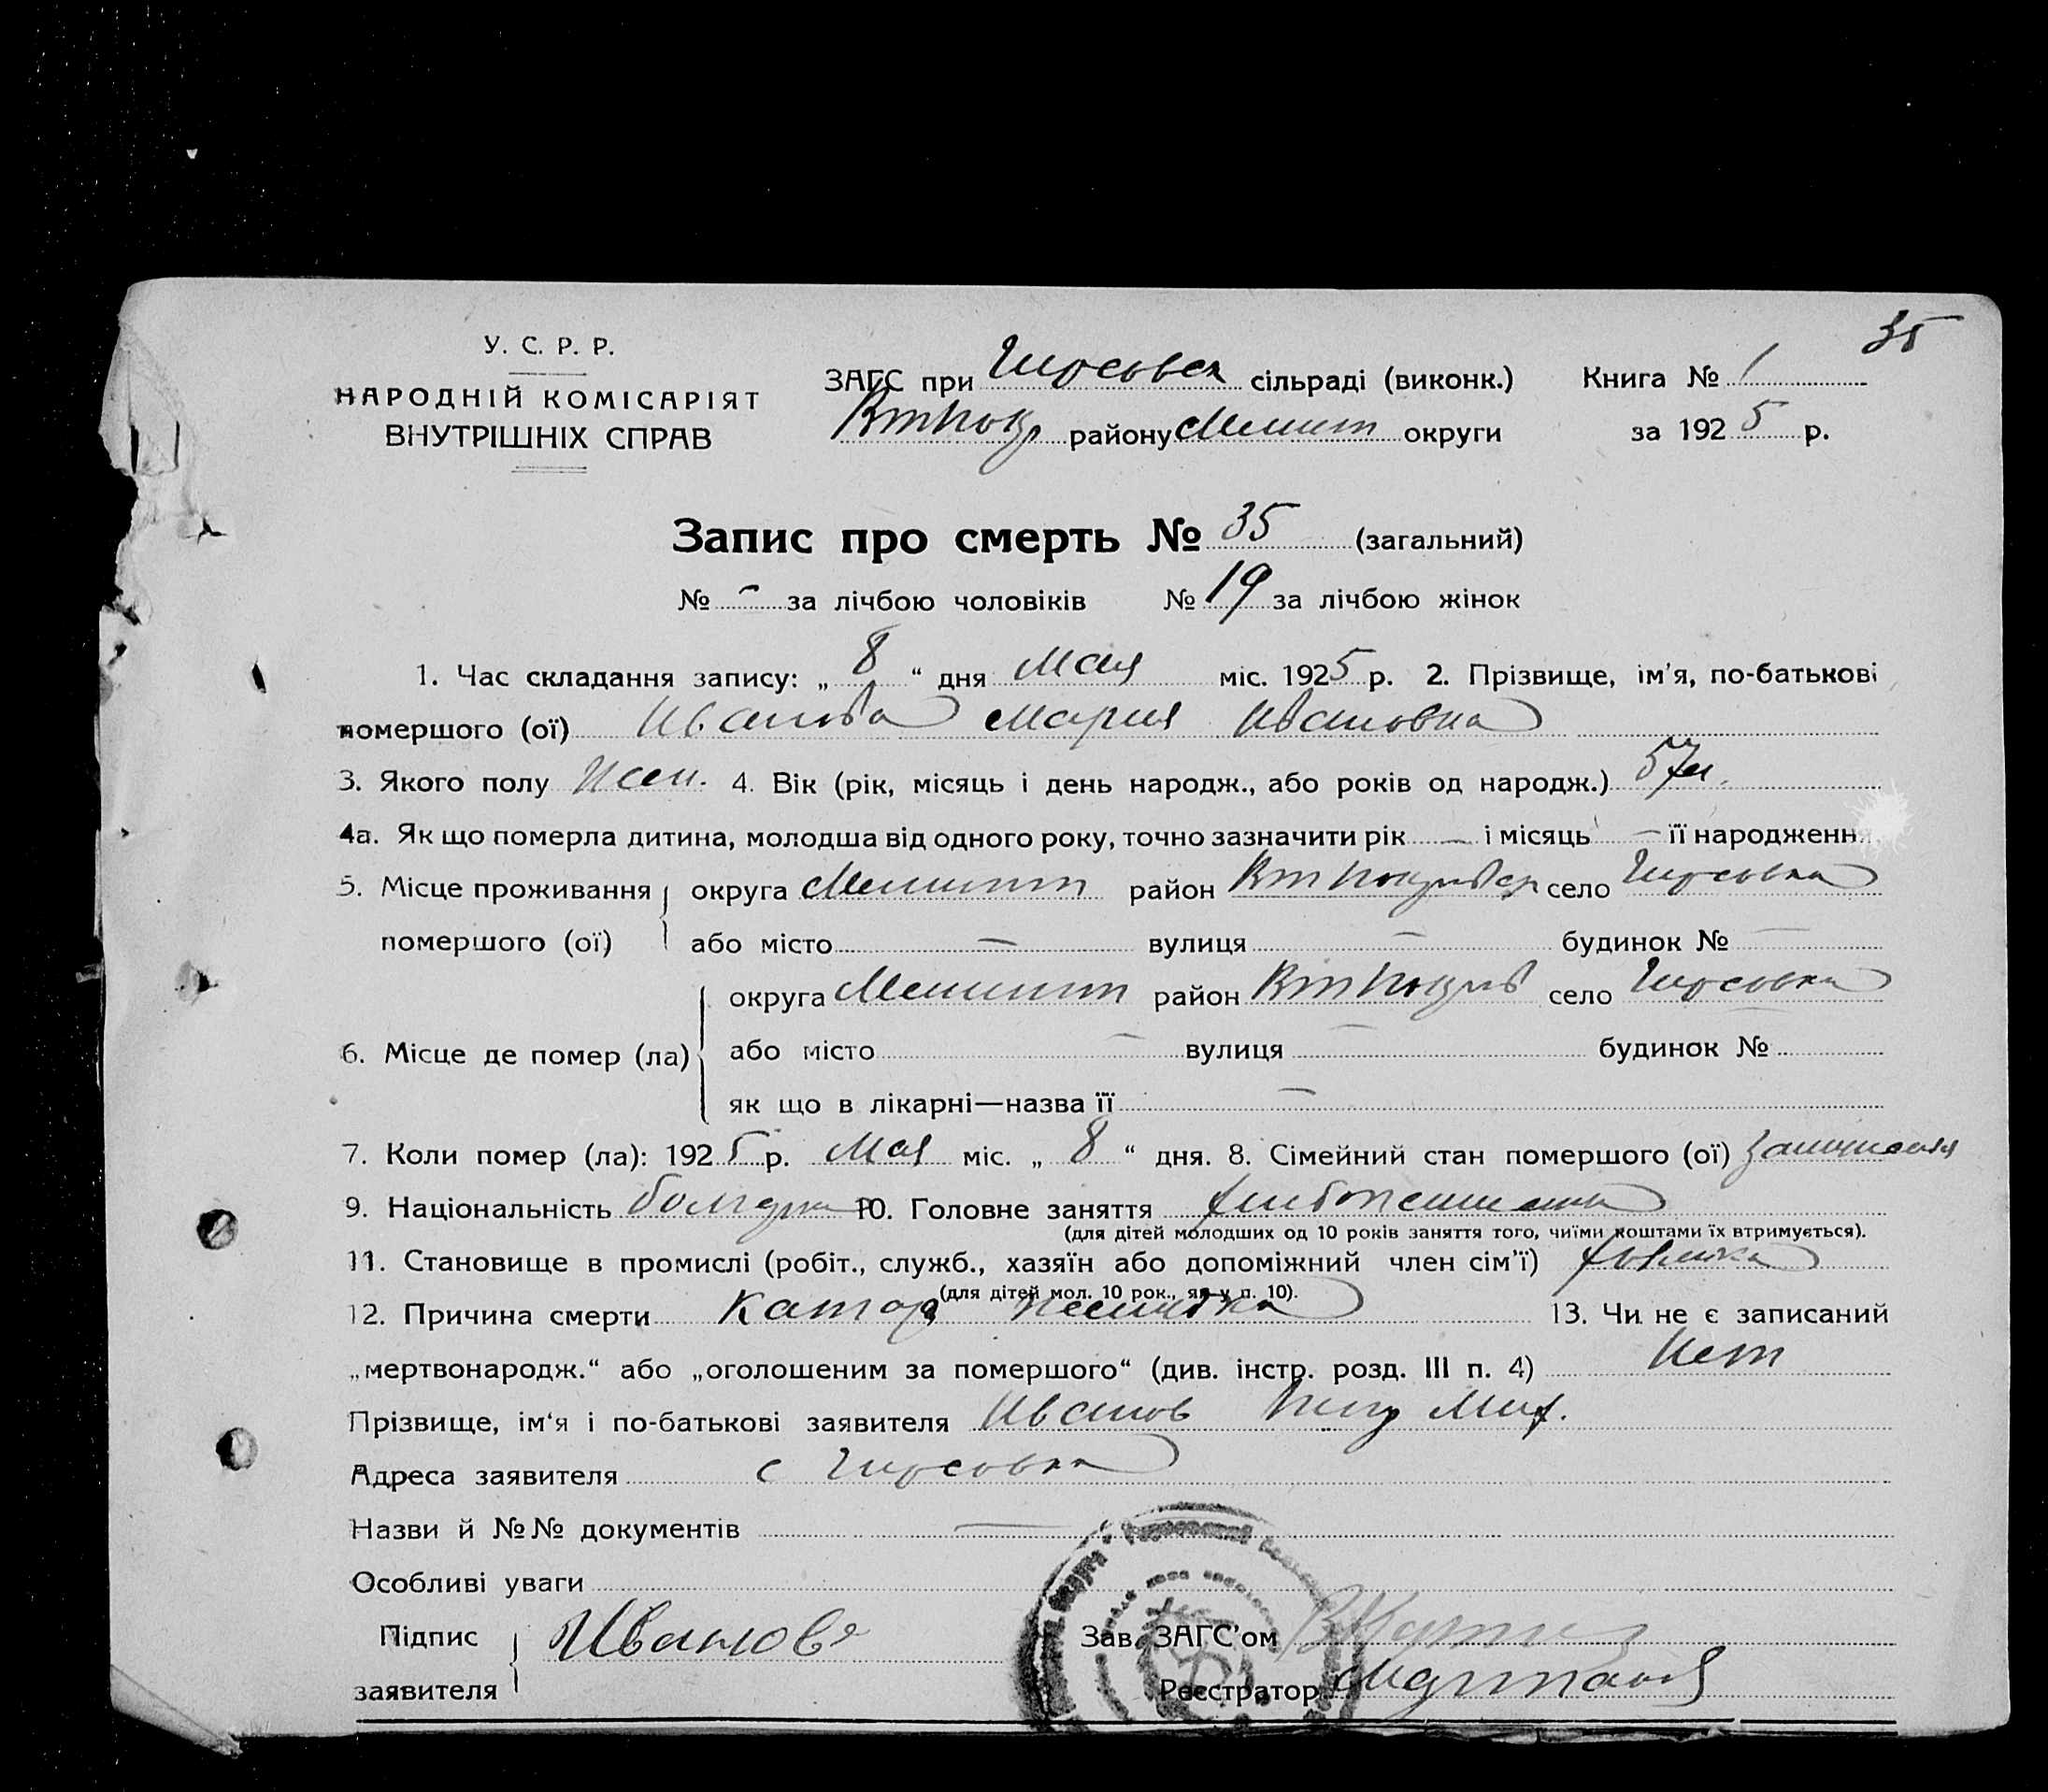 35
У. С. Р. Р.
НАРОДНІЙ КОМІСАРІЯТ
ВНУТРІШНІХ СПРАВ
ЗАГС при Гирсовск сільраді (виконк.) Книга № 1
району Мелит округи за 1925 р.
Запис про смерть № 35 (загальний)
№ - за лічбою чоловіків № 19 за лічбою жінок
1. Час складання запису: „ 8 “ дня Мая міс. 1925 р. 2. Прізвище, ім'я, по-батькові
помершого (ої) Иванова Мария Ивановна
3. Якого полу жен. 4. Вік (рік, місяць і день народж., або років од народж.) 57 л.
4а. Як що померла дитина, молодша від одного року, точно зазначити рік — і місяць — її народження
5. Місце проживання округа Мелитоп район село Гирсовка
помершого (ої) або місто — вулиця — будинок № —
округа Мелитоп район село Гирсовка
6. Місце де помер (ла) або місто — вулиця — будинок №
як що в лікарні—назва її —
7. Коли помер (ла): 1925 р. Мая міс. „ 8 “ дня. 8. Сімейний стан помершого (ої) замужняя
9. Національність болгарка 10. Головне заняття хлебопашество
(для дітей молодших од 10 років заняття того, чиїми коштами їх втримується).
11. Становище в промислі (робіт., служб., хазяїн або допоміжний член сім'ї)
(для дітей мол. 10 рок., як у п. 10).
12. Причина смерти Катар желудка 13. Чи не є записаний
„мертвонародж.“ або „оголошеним за помершого“ (див. інстр. розд. III п. 4) Нет
Прізвище, ім'я і по-батькові заявителя Иванов Петр Мих.
Адреса заявителя с Гирсовка
Назви й №№ документів —
Особливі уваги
Підпис заявителя Иванов
Зав. ЗАГС'ом
Реєстратор